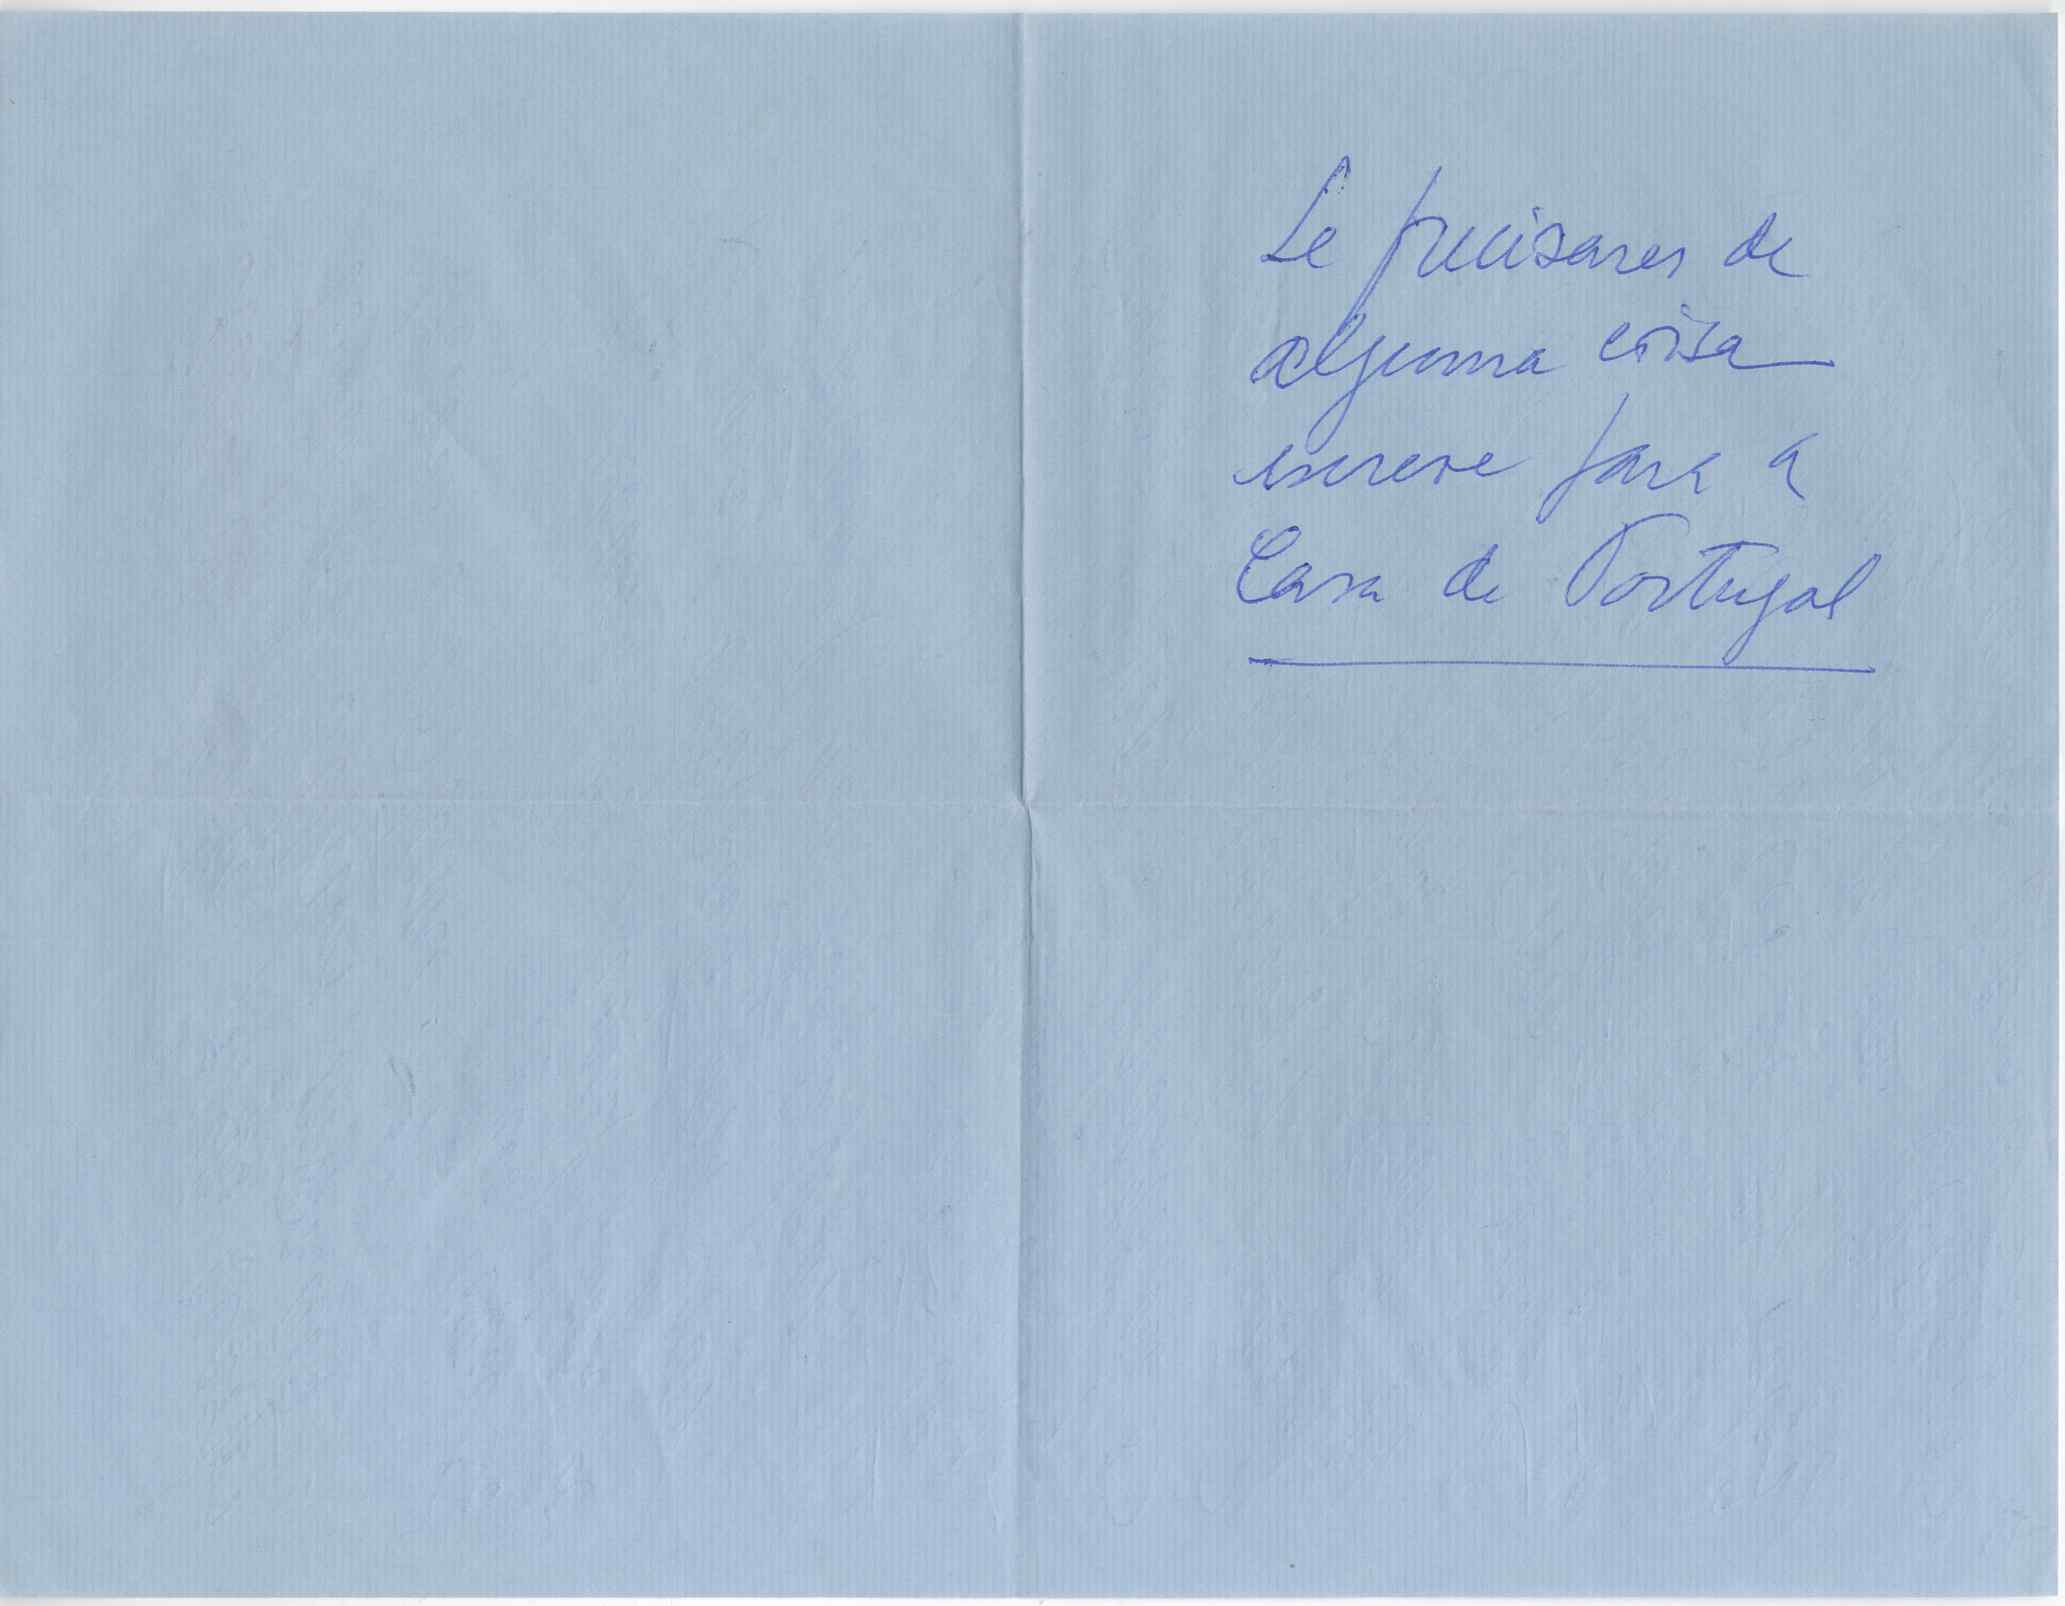 Se precisares de
alguma coisa
escreve para a
Casa de Portugal